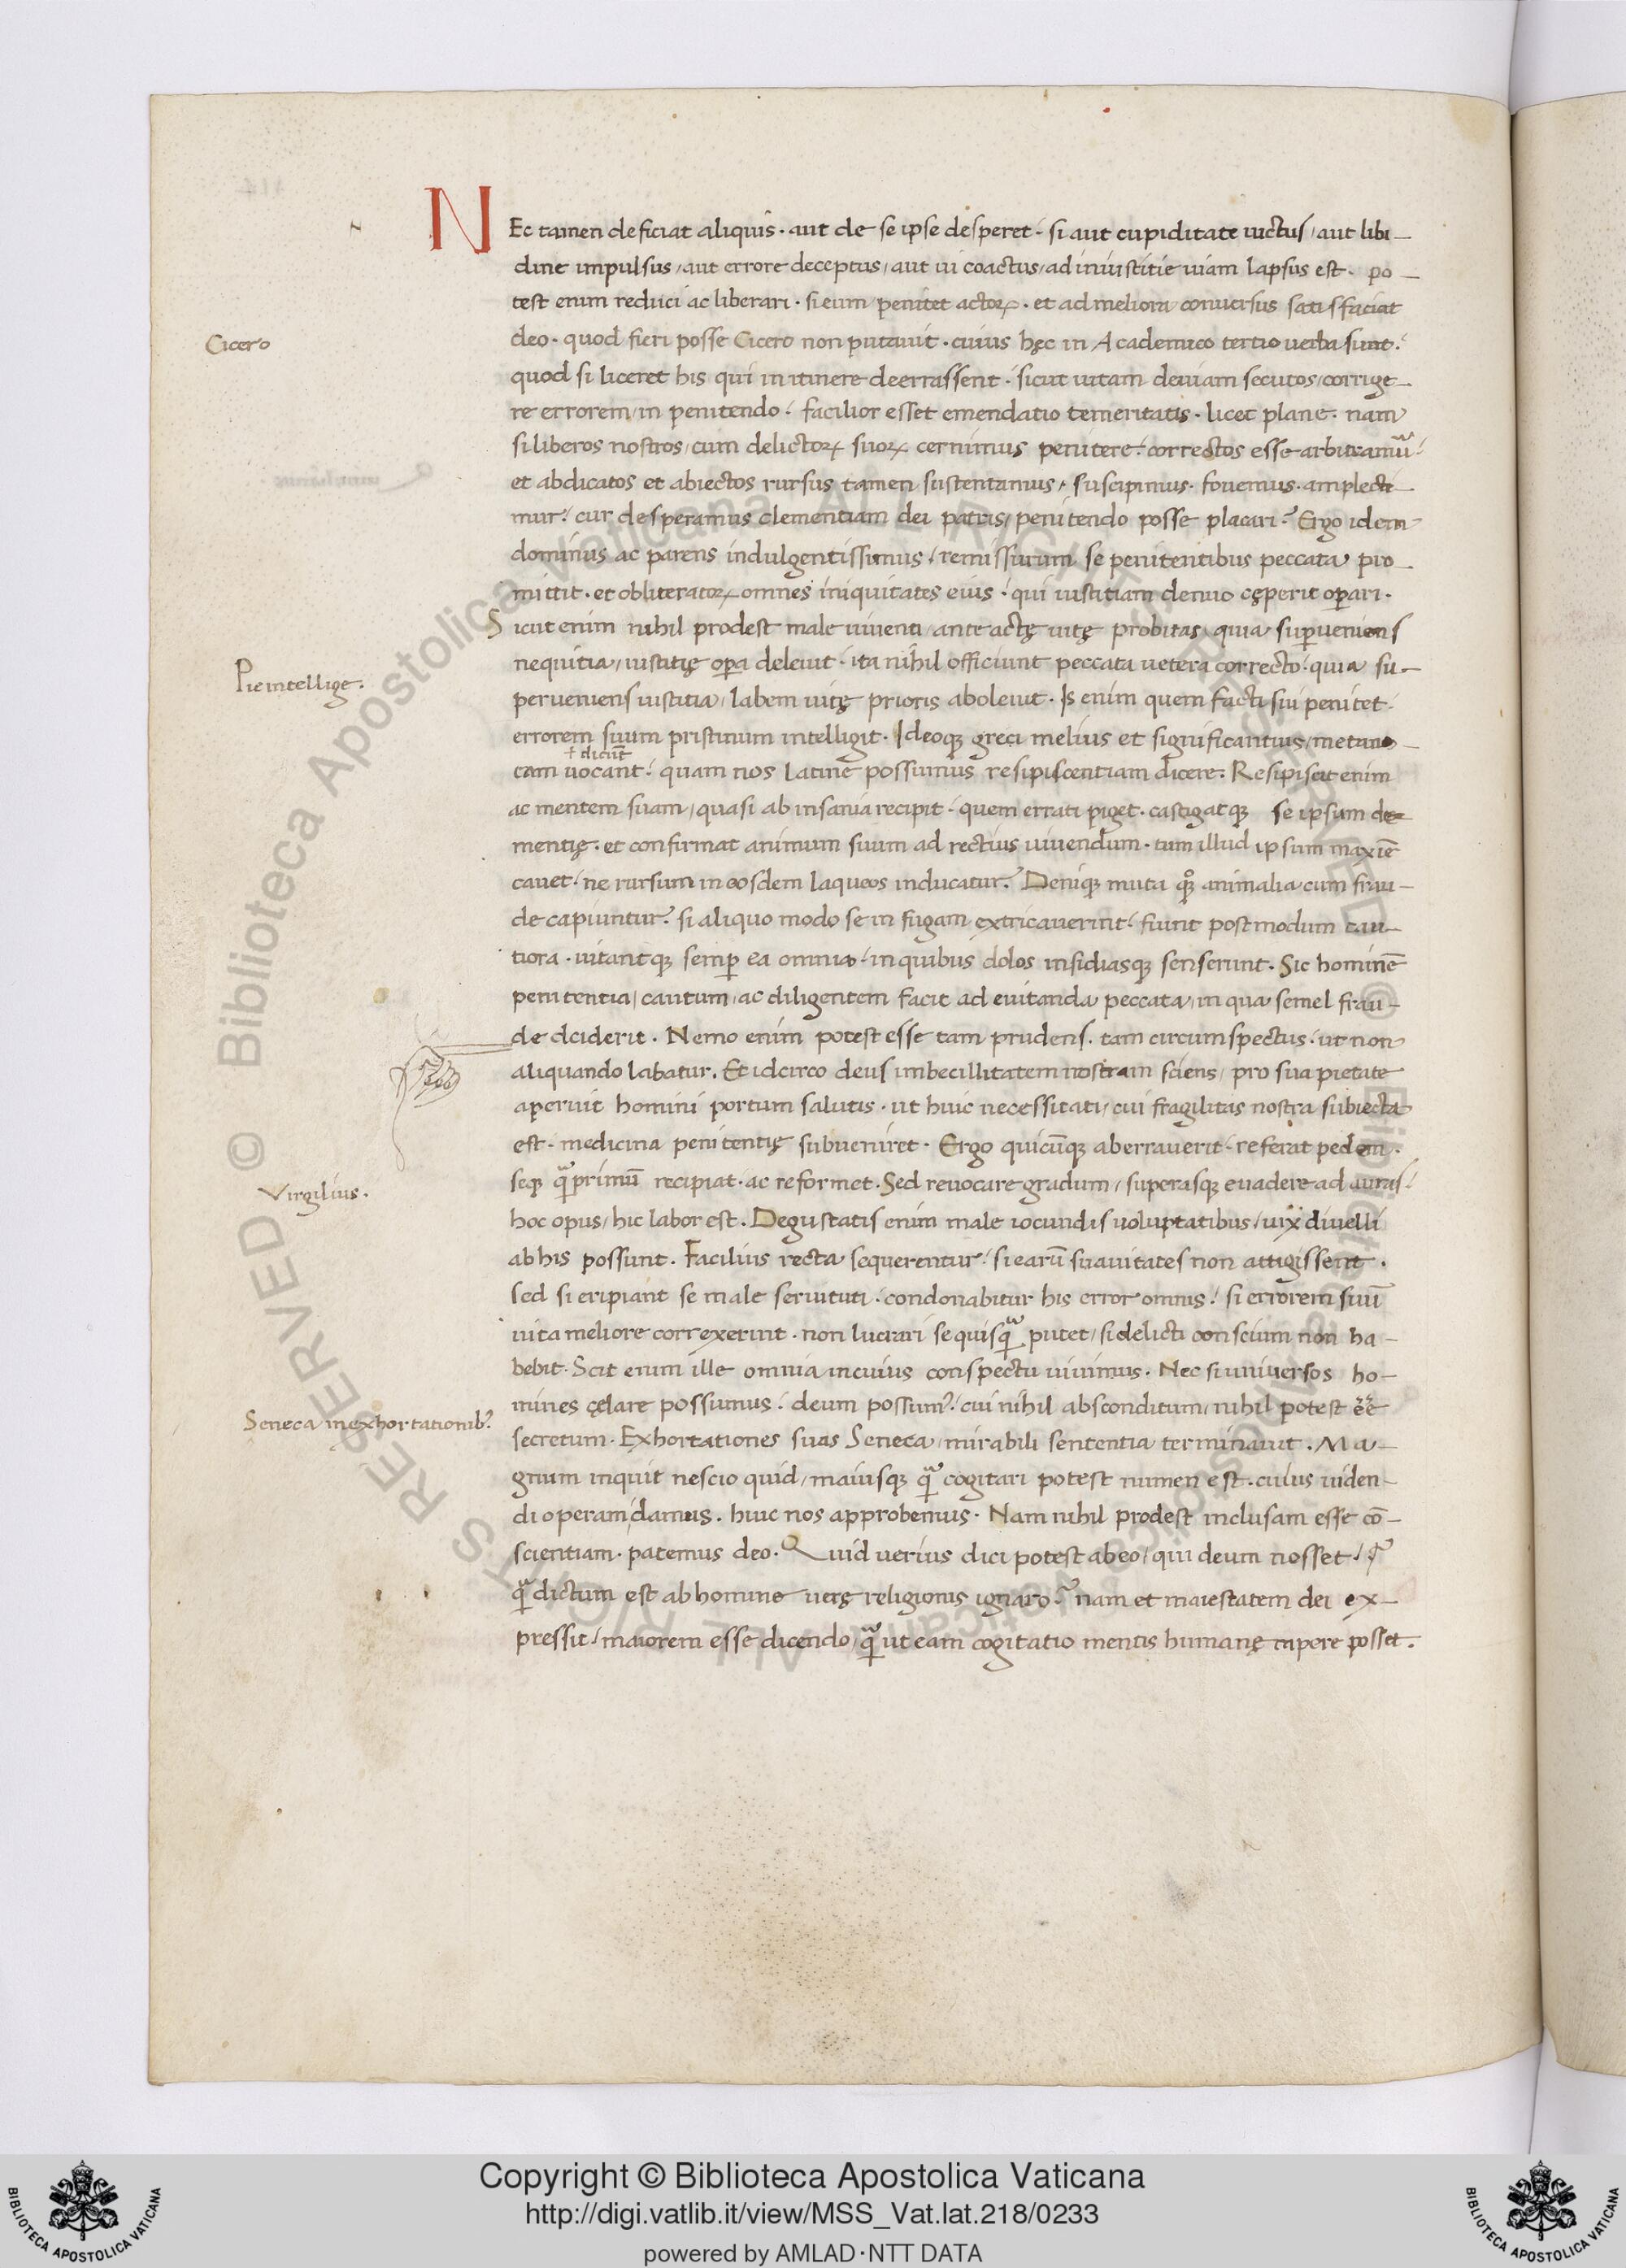 NEc tamen deficiat aliquis · aut de se ipse desperet · si aut cupiditate uictus / aut libi-
dine impulsus / aut errore deceptus / aut ui coactus / ad iniustitie uiam lapsus est · po-
test enim reduci ac liberari · si eum penitet actoꝝ · et ad meliora conuersus satisfaciat
Cicero
deo · quod fieri posse Cicero non putauit · cuius hęc in Academico tertio uerba sunt ·
quod si liceret his qui in itinere deerrassent · sicut uitam deuiam secutos / corrige-
re errorem / in penitendo · facilior esset emendatio temeritatis · licet plane · nam
si liberos nostros / cum delictoꝝ suoꝝ cernimus penitere · correctos esse arbitramur ·
et abdicatos et abiectos rursus tamen sustentamus / suscipimus · fouemus · amplecti-
mur · cur desperamus clementiam dei patris / penitendo posse placari? Ergo idem
dominus ac parens indulgentissimus / remissurum se penitentibus peccata pro-
mittit · et obliteratoꝝ omnes iniquitates eius · qui iustitiam denuo cęperit oꝑari ·
Sicut enim nihil prodest male uiuenti / ante actę uitę probitas / quia suꝑueniens
Pie intellige.
nequitia / iustitię oꝑa deleuit · ita nihil officiunt peccata uetera correcto · quia su-
perueniens iustitia / labem uitę prioris aboleuit · Is enim quem facti sui penitet ·
errorem suum pristinum intelligit · Ideoqꝫ greci melius et significantius / metano-
ł dicūt
eam uocant · quam nos latine possumus resipiscentiam dicere · Resipiscit enim
ac mentem suam / quasi ab insania recipit · quem errati piget · castigatqꝫ se ipsum de-
mentię · et confirmat animum suum ad rectius uiuendum · tum illud ipsum maxīe
cauet · ne rursum in eosdem laqueos inducatur · Deniqꝫ muta qͦꝫ animalia cum frau-
de capiuntur · si aliquo modo se in fugam extricauerint · fiunt postmodum cau-
tiora · uitantqꝫ semꝑ ea omnia · in quibus dolos insidiasqꝫ senserunt · Sic hominē
penitentia / cautum / ac diligentem facit ad euitanda peccata / in qua semel frau-
de dciderit · Nemo enim potest esse tam prudens · tam circumspectus · ut non
aliquando labatur · Et idcirco deus imbecillitatem nostram sciens / pro sua pietate
aperuit homini portum salutis · ut huic necessitati / cui fragilitas nostra subiecta
est · medicina penitentię subueniret · Ergo quicūqꝫ aberrauerit · referat pedem ·
Virgilius.
seqꝫ qᷓprimū recipiat · ac reformet · Sed reuocare gradum / superasqꝫ euadere ad auras ·
hoc opus / hic labor est · Degustatis enim male iocundis uoluptatibus / uix diuelli
ab his possunt · Facilius recta sequerentur · si earū suauitates non attigissent ·
sed si eripiant se male seruituti · condonabitur his error omnis · si errorem suū
uita meliore correxerint · non lucrari se quisqᷓ putet / si delicti conscium non ha-
bebit · Scit enim ille omnia in cuius conspectu uiuimus · Nec si uniuersos ho-
mines cęlare possumus · deum possumꝰ · cui nihil absconditum / nihil potest eē
Seneca in exhortationibꝰ
secretum · Exhortationes suas Seneca / mirabili sententia terminauit · Ma-
gnum inquit nescio quid / maiusqꝫ qᷓ cogitari potest numen est · cuius uiden-
di operam damus · huic nos approbemus · Nam nihil prodest inclusam esse cō-
scientiam · patemus deo · Quid uerius dici potest ab eo / qui deum nosset ·
qᷓ dictum est ab homine uerę religionis ignaro? nam et maiestatem dei ex-
pressit / maiorem esse dicendo / qᷓ ut eam cogitatio mentis humanę capere posset.
© Biblioteca Apostolica Vaticana ALL RIGHTS RESERVED
Copyright © Biblioteca Apostolica Vaticana
http://digi.vatlib.it/view/MSS_Vat.lat.218/0233
powered by AMLAD·NTT DATA
BIBLIOTECA APOSTOLICA VATICANA
BIBLIOTECA APOSTOLICA VATICANA